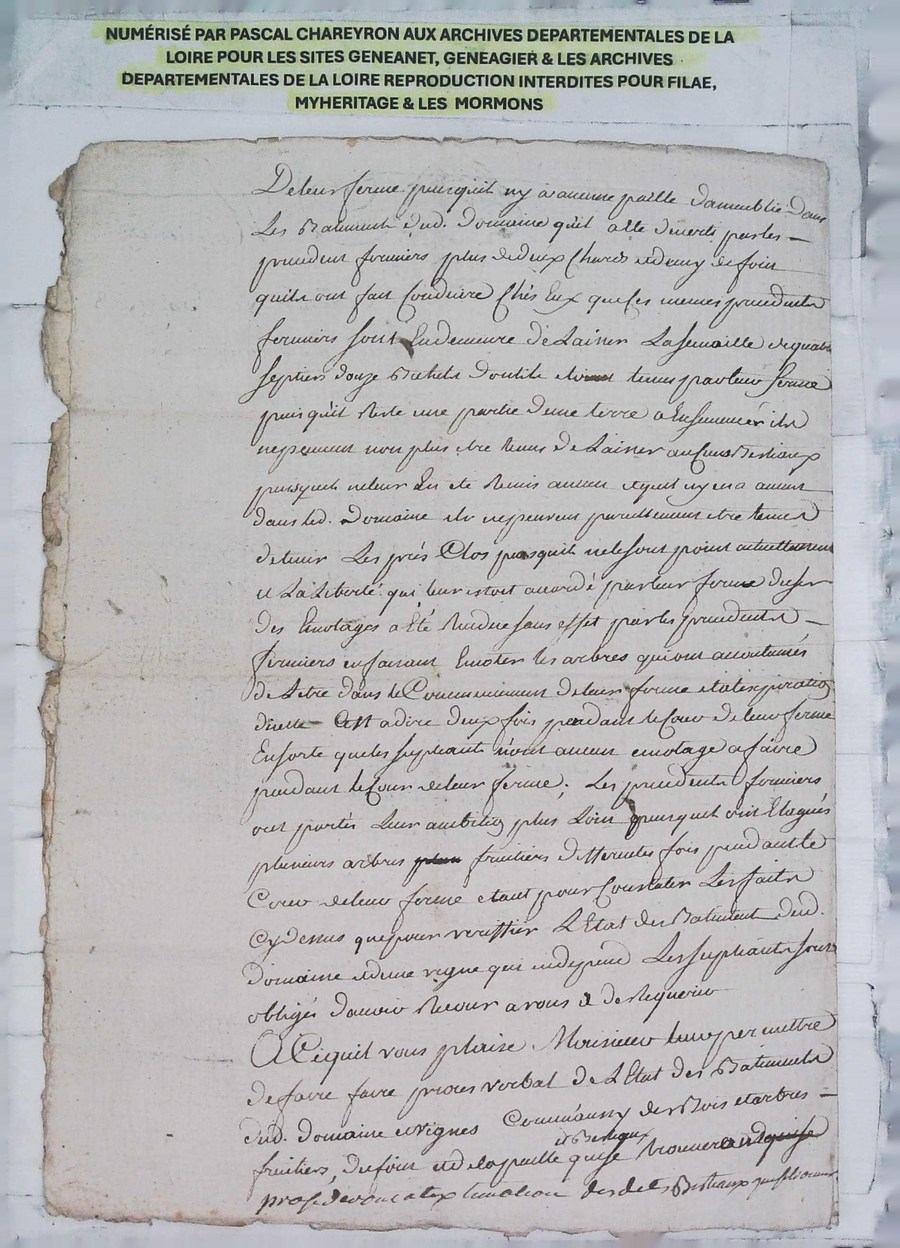 NUMÉRISÉ PAR PASCAL CHAREYRON AUX ARCHIVES DEPARTEMENTALES DE LA
LOIRE POUR LES SITES GENEANET, GENEAGIER & LES ARCHIVES
DEPARTEMENTALES DE LA LOIRE REPRODUCTION INTERDITES POUR FILAE,
MYHERITAGE & LES MORMONS
De leur ferme puisquil ny a aucune paille dans
Les Batiments dud. domaine quil a été par les
precedent fermiers plus de deux Chards et demy de foin
quils ont fait Conduire Chés Eux que Ces memes precedents
fermiers sont En demeure de Laisser La semaille de quatre
septiers douze Bichets tenus par leur ferme
puis quil Reste une partie dune terre a Ensemencér ils
ne peuvent non plus etre tenus de Laisser aucuns Bestiaux
puisquil ne leur En été Remis aucun et quil ny en a aucun
dans led. Domaine ils ne peuvent pareillement etre tenus
de tenir Les prés Clos puisquils ne le sont point actuellement
et La Liberté qui leur estoit accordé par leur ferme duser
des Emotages a Eté Rendue sans effet par les precedents
fermiers en faisant Emoter les arbres qui ont accoutumés
de Letre dans le Commencement de leur ferme et a lexpiration
dicelle Cest a dire deux fois pendant le Cour de leur ferme
En sorte que les supliants nont aucun emotage a faire
pendant le Cour de leur ferme; Les precedents fermiers
ont portés Leur ambition plus Loin puisquil ont Elagués
plusieurs arbres fruitiers differentes fois pendant le
Cour de leur ferme et tant pour Constater Les faits
Cy dessus que pour veriffier LEtat des Batiment dud.
domaine et dune vigne qui en depend Les supliants sont
obligés davoir Recour a vous et de Requerir
A Ce quil vous plaise Monsieur leur permettre
de faire faire proces verbal de LEtat des Batiments
dud. Domaine et vignes des Bois et arbres
et Bestiaux
fruitiers, du foin et de la paille qui se
des Bestiaux